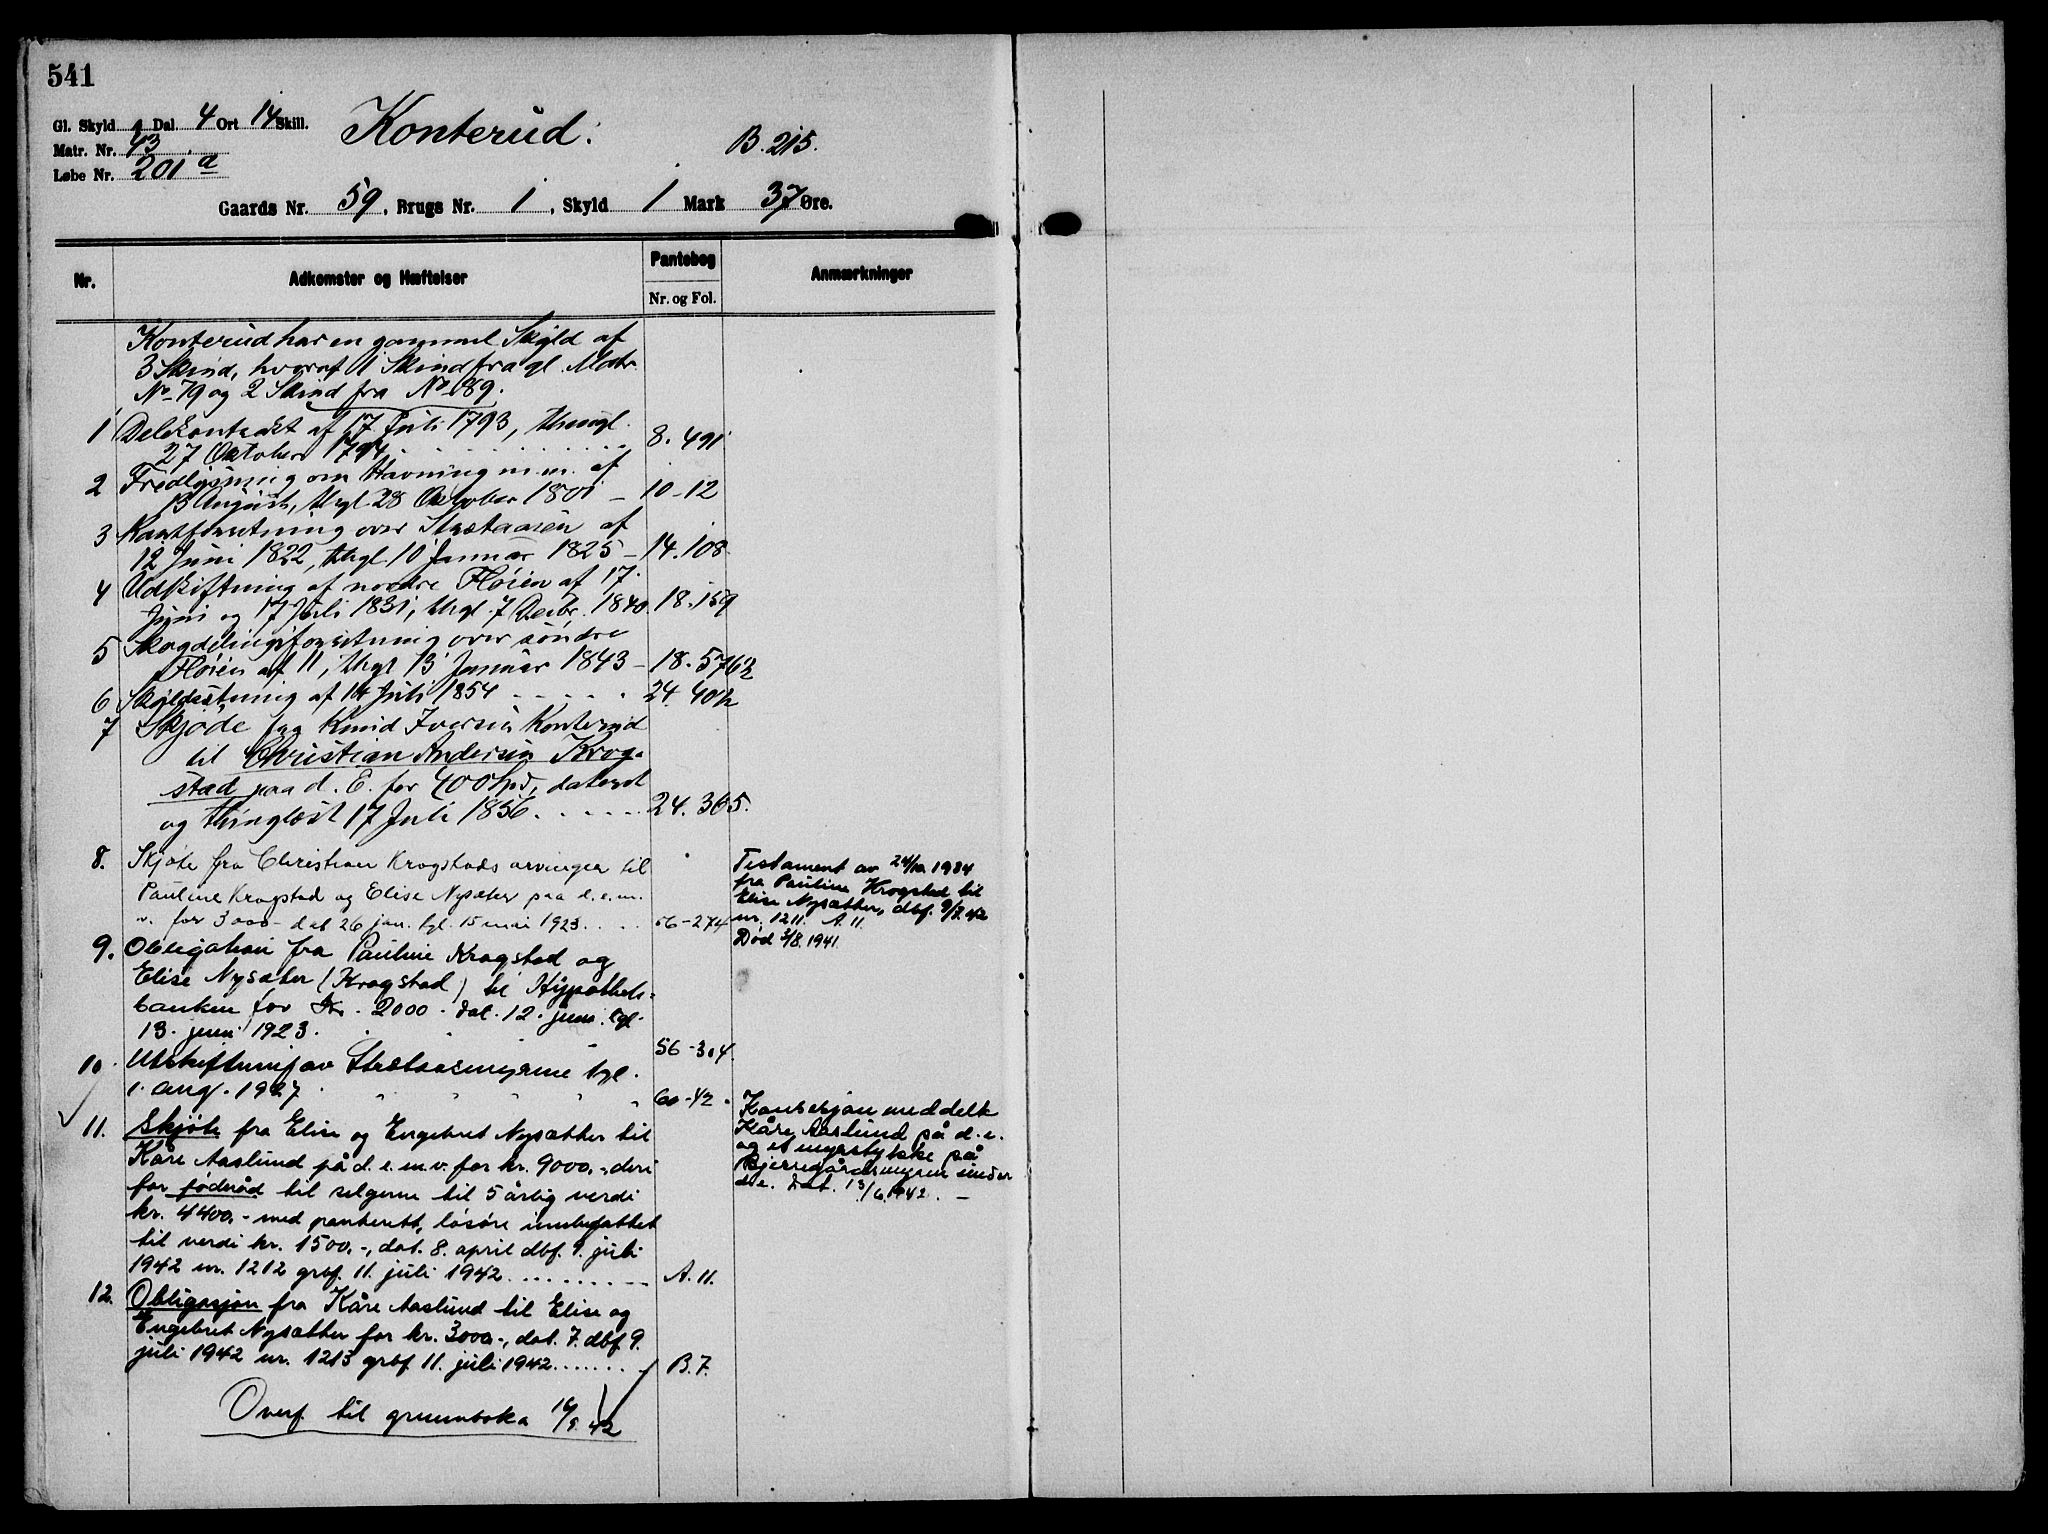 541
Gl. Skyld 1 Dal. 4 Ort 14 Skill.
Konterud.
B. 215.
Matr. Nr. 43
Løbe Nr. 201 a
Gaards Nr. 59, Brugs Nr. 1, Skyld 1 Mark 37 Øre.
Nr.
Adkomster og Hæftelser
Pantebog
Nr. og Fol.
Anmærkninger
Konterud har en gammel Skyld af
3 Skind, hvoraf 1 Skind fra gl. Matr.
No 79 og 2 Skind fra No 89.
1 Delekontrakt af 17 Juli 1793, thingl.
27 Oktober 1794 8. 491
2 Fredlysning om Havning m.m. af
13 August, thgl 28 Oktober 1801 10-12
3 over af
12 Juni 1822, thgl. 10 Januar 1825 14. 108
4 Udskiftning af nordre Fløien af 17.
Juni og 17 Juli 1831, thgl. 7 Decbr. 1840. 18. 159
5 Skogdelingsforretning over søndre
Fløien af 11, thgl 13 Januar 1843 18. 576b
6 Skyldsætning af 14 Juli 1854 24. 40b
7 Skjøde fra Knud Iversen Konterud
til Christian Andersen Krog-
stad paa d. E. for 400 Spd, dateret
og thinglæst 17 Juli 1856 24. 365.
8. Skjøte fra Christian Krogstads arvinger til
Pauline Krogstad og Elise Nysæter paa d.e.m.
v. for 3000- dat 26 jan. tgl. 15 mai 1923 56-274
Testament av 24/10 1934
fra Pauline Krogstad til
Elise Nysætter, dbf. 9/7. 42
nr. 1211. A. 11.
Død 3/8. 1941.
9. Obligation fra Pauline Krogstad og
Elise Nysæter (Krogstad) til Hypothek-
banken for Kr. 2000.- dat. 12. juni. tgl.
13. juni 1923. 56-304.
10. Utskiftning av tgl.
1. aug. 1927 60-42.
11. Skjøte fra Elise og Engebret Nysætter til
Kåre Aaslund på d.e.m.v. for kr. 9000,- deri
for fødråd til selgerne til 5 årlig verdi
kr. 4400,- med panterett, løsøre innbefattet
til verdi kr. 1500,-, dat. 8. april dbf. 9. juli
1942 nr. 1212 grbf. 11. juli 1942 A. 11.
Konsesjon meddelt
Kåre Aaslund på d.e.
og et myrstykke på
Bjerregårdsmyren under
d.e. Dat. 13/6 1942. —
12. Obligasjon fra Kåre Aaslund til Elise og
Engebret Nysætter for kr. 3000,-, dat. 7. dbf 9.
juli 1942 nr. 1213 grbf 11. juli 1942 B. 7.
Overf. til grunnboka 42